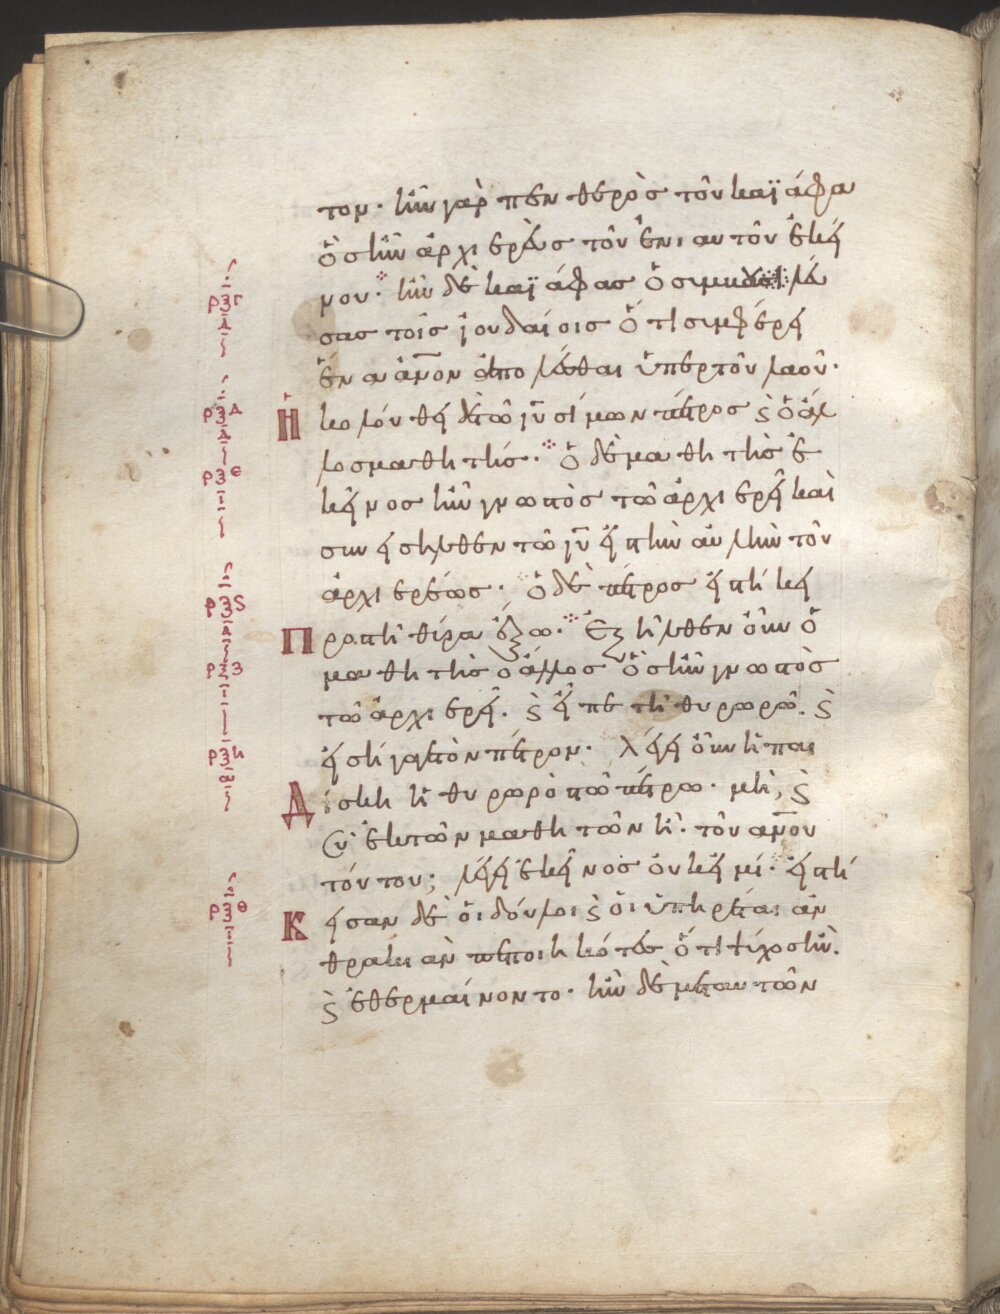 του· ἦν γὰρ πενθερὸς τοῦ καϊάφα
ὃς ἦν ἀρχιερεὺς τοῦ ἐνιαυτοῦ ἐκεί
νου· ἦν δὲ καϊάφας ὁ συμβουλεύ
ρξγ
δ
σας τοῖς ἰουδαίοις ὅτι συμφέρει
ἕνα ἄνον ἀπολέσθαι ὑπὲρ τοῦ λαοῦ·
ρξδ
δ
Ἠκολούθει δὲ τῶ ιυ σίμων πέτρος ϛ ὁ ἄλ
λος μαθητής· ὁ δὲ μαθητὴς ἐ
ρξε
ι
κεῖνος ἦν γνωστὸς τῶ ἀρχιερεῖ καὶ
συνεισῆλθεν τῶ ιυ εἰς τὴν αὐλὴν τοῦ
ἀρχιερέως· ὁ δὲ πέτρος εἱστήκει
ρξϛ
δ
Προς τῆ θύρα ἔξω· Ἐξῆλθεν οὖν ὁ
μαθητὴς ὁ ἄλλος ὃς ἦν γνωστὸς
ρξζ
ι
τῶ ἀρχιερεῖ. ϛ εἶπε τῆ θυρωρῶ. ϛ
εἰσήγαγε τὸν πέτρον· λέγει οὖν ἡ παι
ρξη
α
Δίσκη ἡ θυρωρὸς τῶ πέτρω· μὴ, ϛ
σὺ ἐκ τῶν μαθητῶν εἶ· τοῦ ανου
τούτου; λέγει ἐκεῖνος οὐκ εἰμί· εἱστή
ρξθ
ι
Κεισαν δὲ οἱ δοῦλοι ϛ οἱ ὑπηρέται ἀν
θρακιὰν πεποιηκότες ὅτι ψύχος ἦν.
ϛ ἐθερμαίνοντο· ἦν δὲ μετ αυτῶν